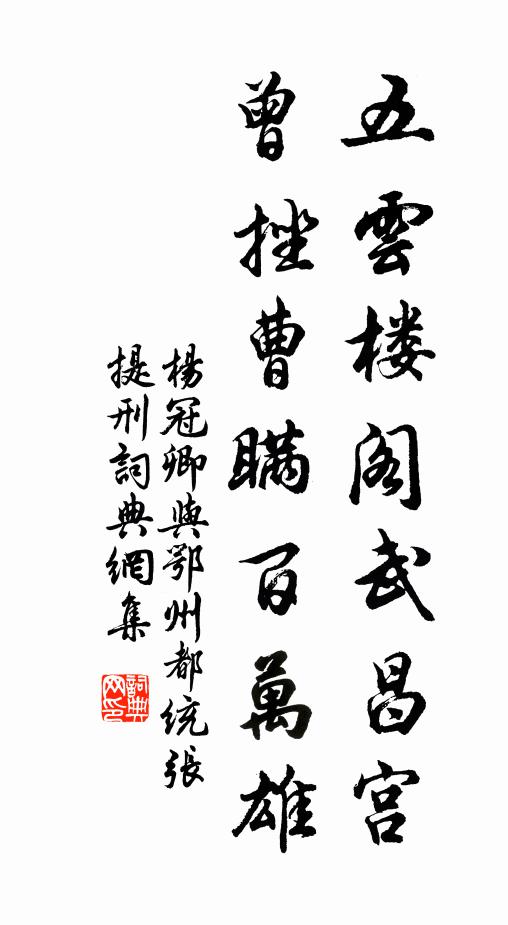 五雲楼阁武昌宫
曾挫曹瞒百萬雄
楊冠卿與鄂州都统張
提刑詞典網集
詞典网印